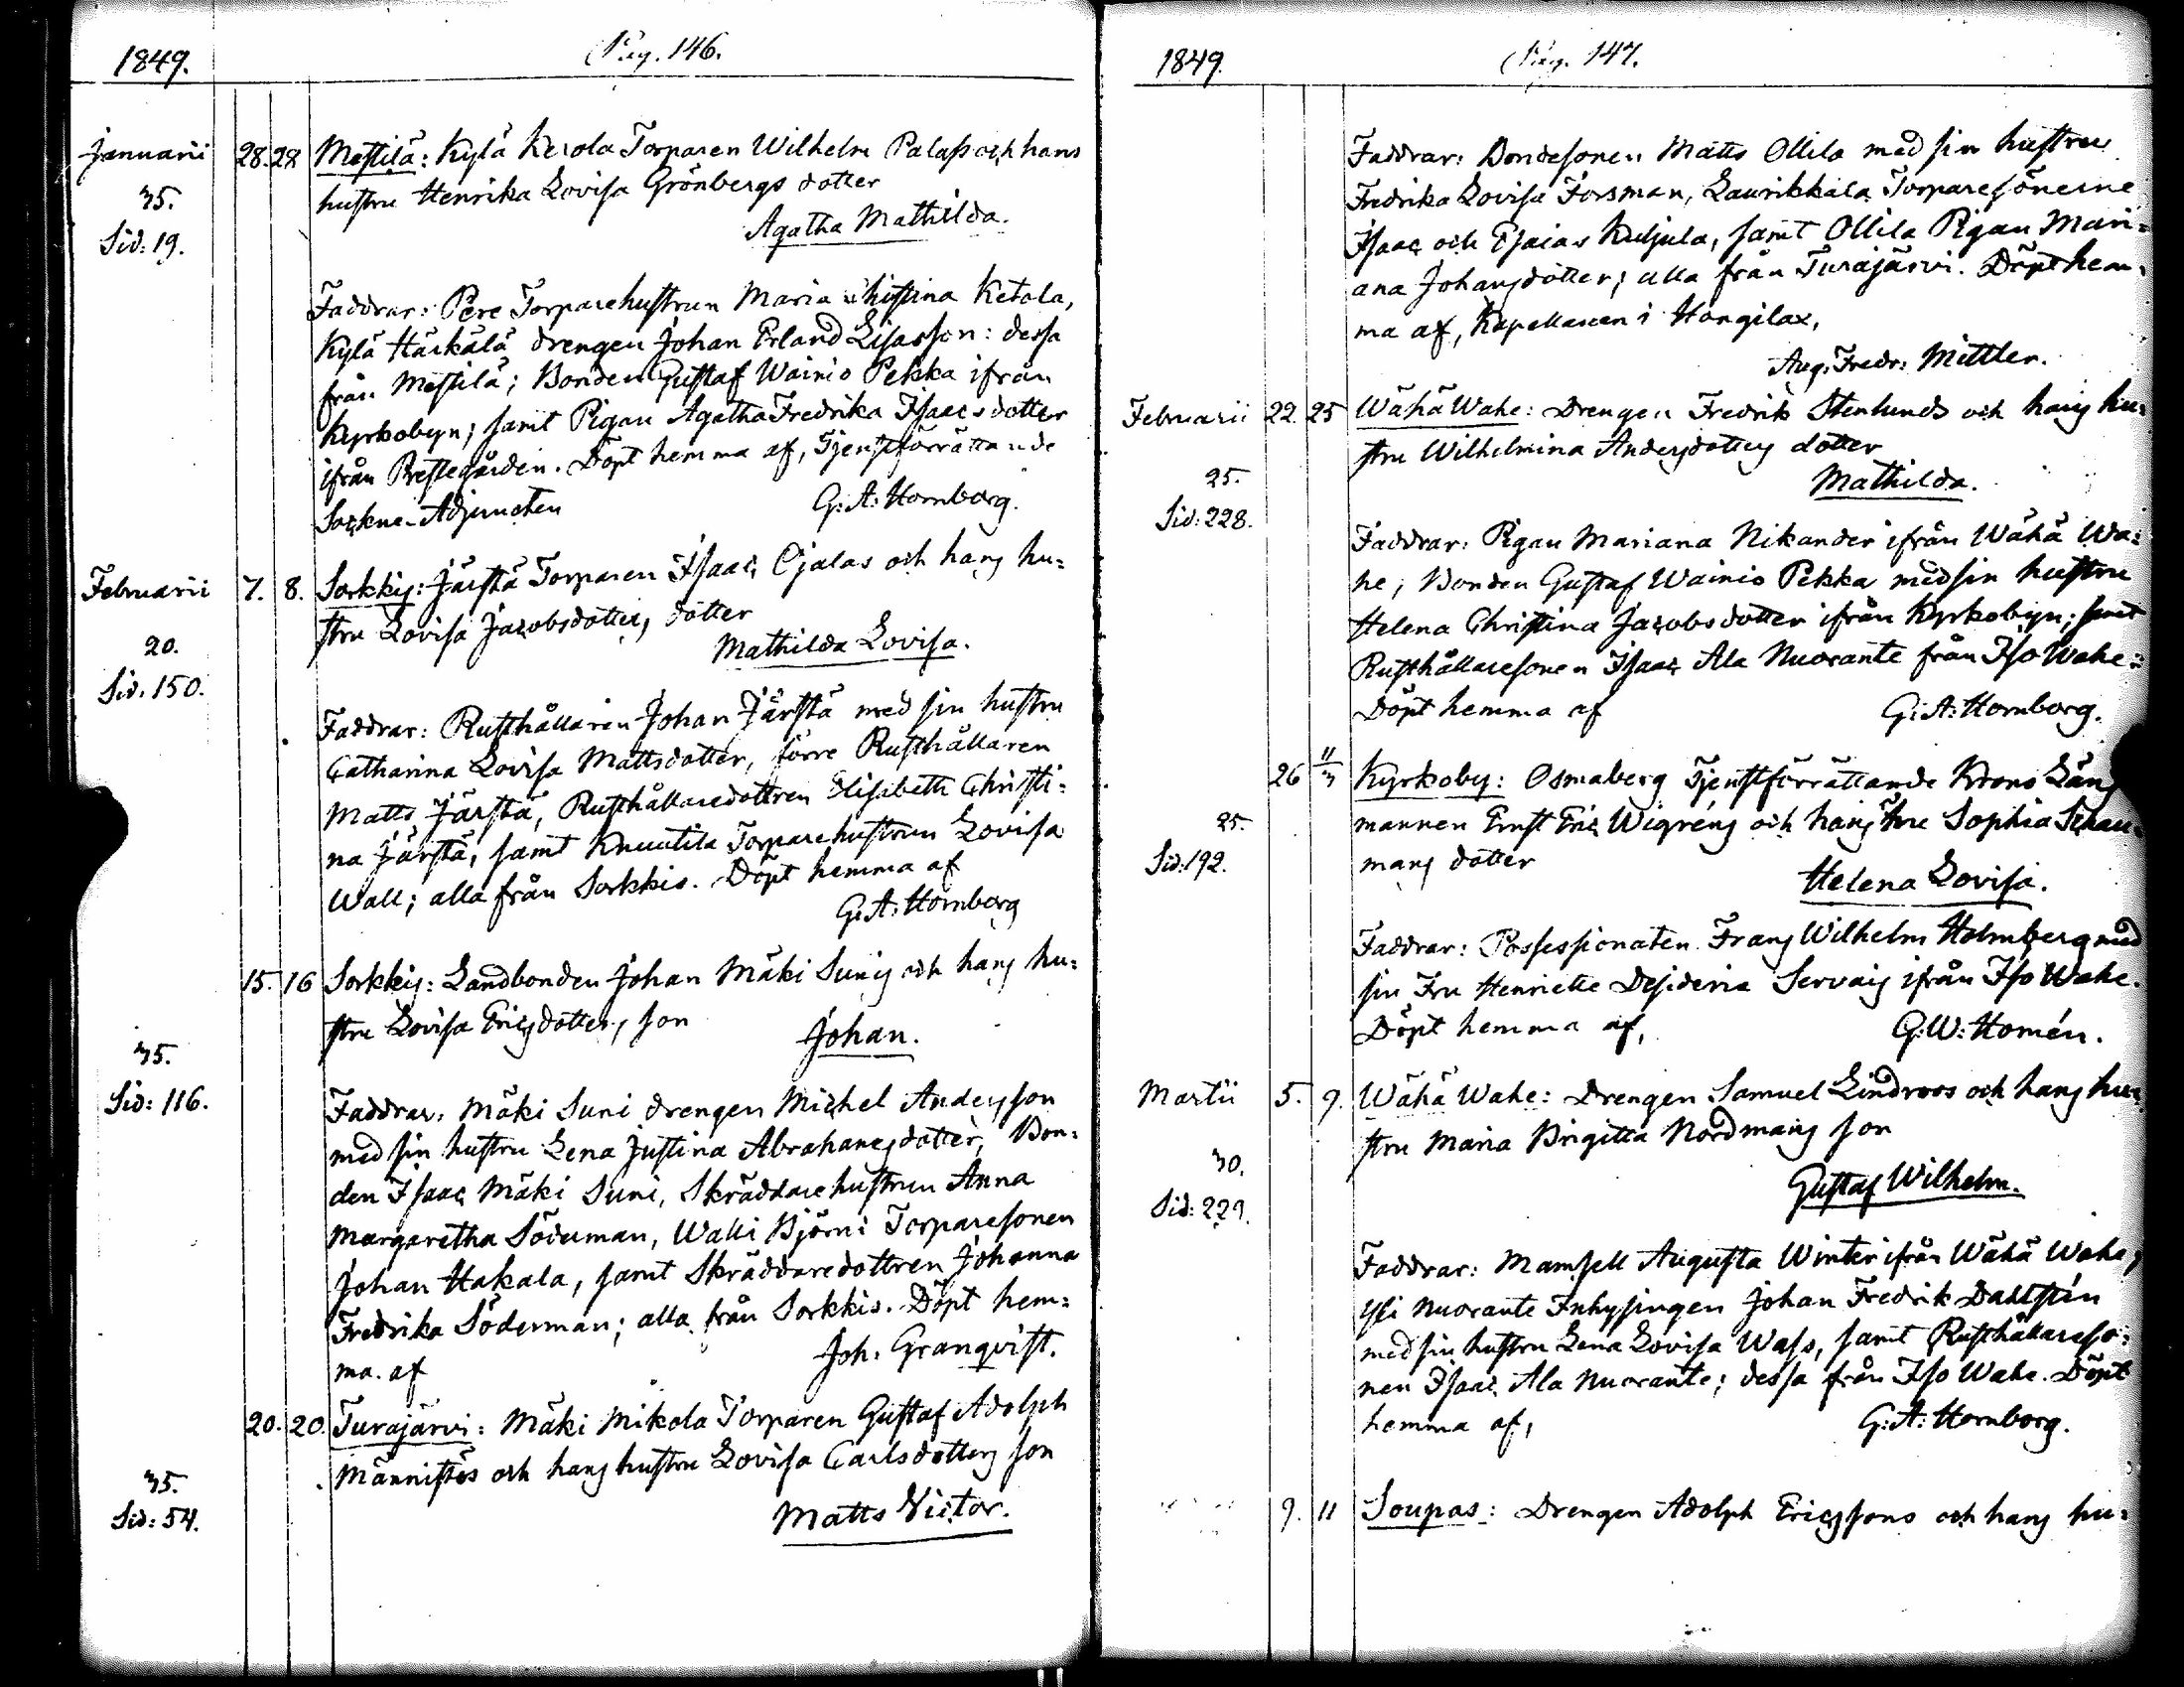 1849.
Pag. 146.
Januarii 28. 28 Mestilä: Kylä Kerola Torparen Wilhelm Palass och hans
35. hustru Henrika Lovisa Grönbergs dotter
Sid: 19. Agatha Mathilda.
Faddrar: Pere Torparehustrun Maria Christina Ketola,
Kylä Härkälä drengen Johan Erland Lisasson: dessa
från Mestilä; Bonden Gustaf Wainio Pekka ifrån
Kyrkobyn; samt Pigan Agatha Fredrika Isaacsdotter
ifrån Prestegården. Döpt hemma af, Tjenstförrättande
Sockne-Adjuncten G: A: Hornborg.
Februarii 7. 8. Sorkkis: Järstä Torparen Isaac Ojalas och hans hu=
20. stru Lovisa Jacobsdotters, dotter
Sid. 150. Mathilda Lovisa.
Faddrar: Rusthållaren Johan Järstä med sin hustru
Catharina Lovisa Mattsdotter, förre Rusthållaren
Matts Järstä, Rusthållaredottren Elisabeth Christi=
na Järstä, samt Knuutila Torparehustrun Lovisa
Wall; alla från Sorkkis. Döpt hemma af
G: A: Hornborg
15. 16 Sorkkis: Landbonden Johan Mäki Sunis och hans hu=
stru Lovisa Ericsdotters, son
35. Johan.
Sid: 116. Faddrar: Mäki Suni drengen Michel Andersson
med sin hustru Lena Justina Abrahamsdotter, Bon=
den Isaac Mäki Suni, Skräddarehustrun Anna
Margaretha Söderman, Walli Björni Torparesonen
Johan Hakala, samt Skräddaredottren Johanna
Fredrika Söderman; alla från Sorkkis. Döpt hem=
ma af Joh. Granqvist.
20. 20. Turajärvi: Mäki Mikola Torparen Gustaf Adolph
Männistös och hans hustru Lovisa Carlsdotters son
35. Matts Victor.
Sid: 54.
1849.
Pag. 147.
Faddrar: Bondesonen Matts Ollila med sin hustru
Fredrika Lovisa Forsman, Laurikkala Torparesönerne
Isaac och Esaias Kuljula, samt Ollila Pigan Mari=
ana Johansdotter; alla från Turajärvi. Döpt hem=
ma af, Kapellanen i Hongilax,
Aug: Fredr: Mittler.
Februarii 22. 25 Wähä Wahe: Drengen Fredrik Stenlunds och hans hu=
stru Wilhelmina Andersdotters dotter
25. Mathilda.
Sid: 228.
Faddrar: Pigan Mariana Nikander ifrån Wähä Wa=
he; Bonden Gustaf Wainio Pekka med sin hustru
Helena Christina Jacobsdotter ifrån Kyrkobyn; samt
Rusthållaresonen Isaac Ala Nuorante från Iso Wahe.
Döpt hemma af G: A: Hornborg.
26 11/3 Kyrkoby: Osmaberg Tjenstförrättande Krono Läns
25. mannen Ernst Eric Wigréns och hans Fru Sophia Schau=
Sid: 192. mans dotter
Helena Lovisa.
Faddrar: Possessionaten Frans Wilhelm Holmberg med
sin Fru Henriette Desideria Servais ifrån Iso Wahe.
Döpt hemma af, G: W: Homén.
Martii 5. 9. Wähä Wahe: Drengen Samuel Lindroos och hans hu=
stru Maria Brigitta Nordmans son
30. Gustaf Wilhelm.
Sid: 229.
Faddrar: Mamsell Augusta Winter ifrån Wähä Wahe;
Yli Nuorante Inhysingen Johan Fredrik Dahlstén
med sin hustru Lena Lovisa Wass, samt Rusthållareso=
nen Isaac Ala Nuorante; dessa från Iso Wahe. Döpt
hemma af, G: A: Hornborg.
9. 11 Soupas: Drengen Adolph Ericssons och hans hu=